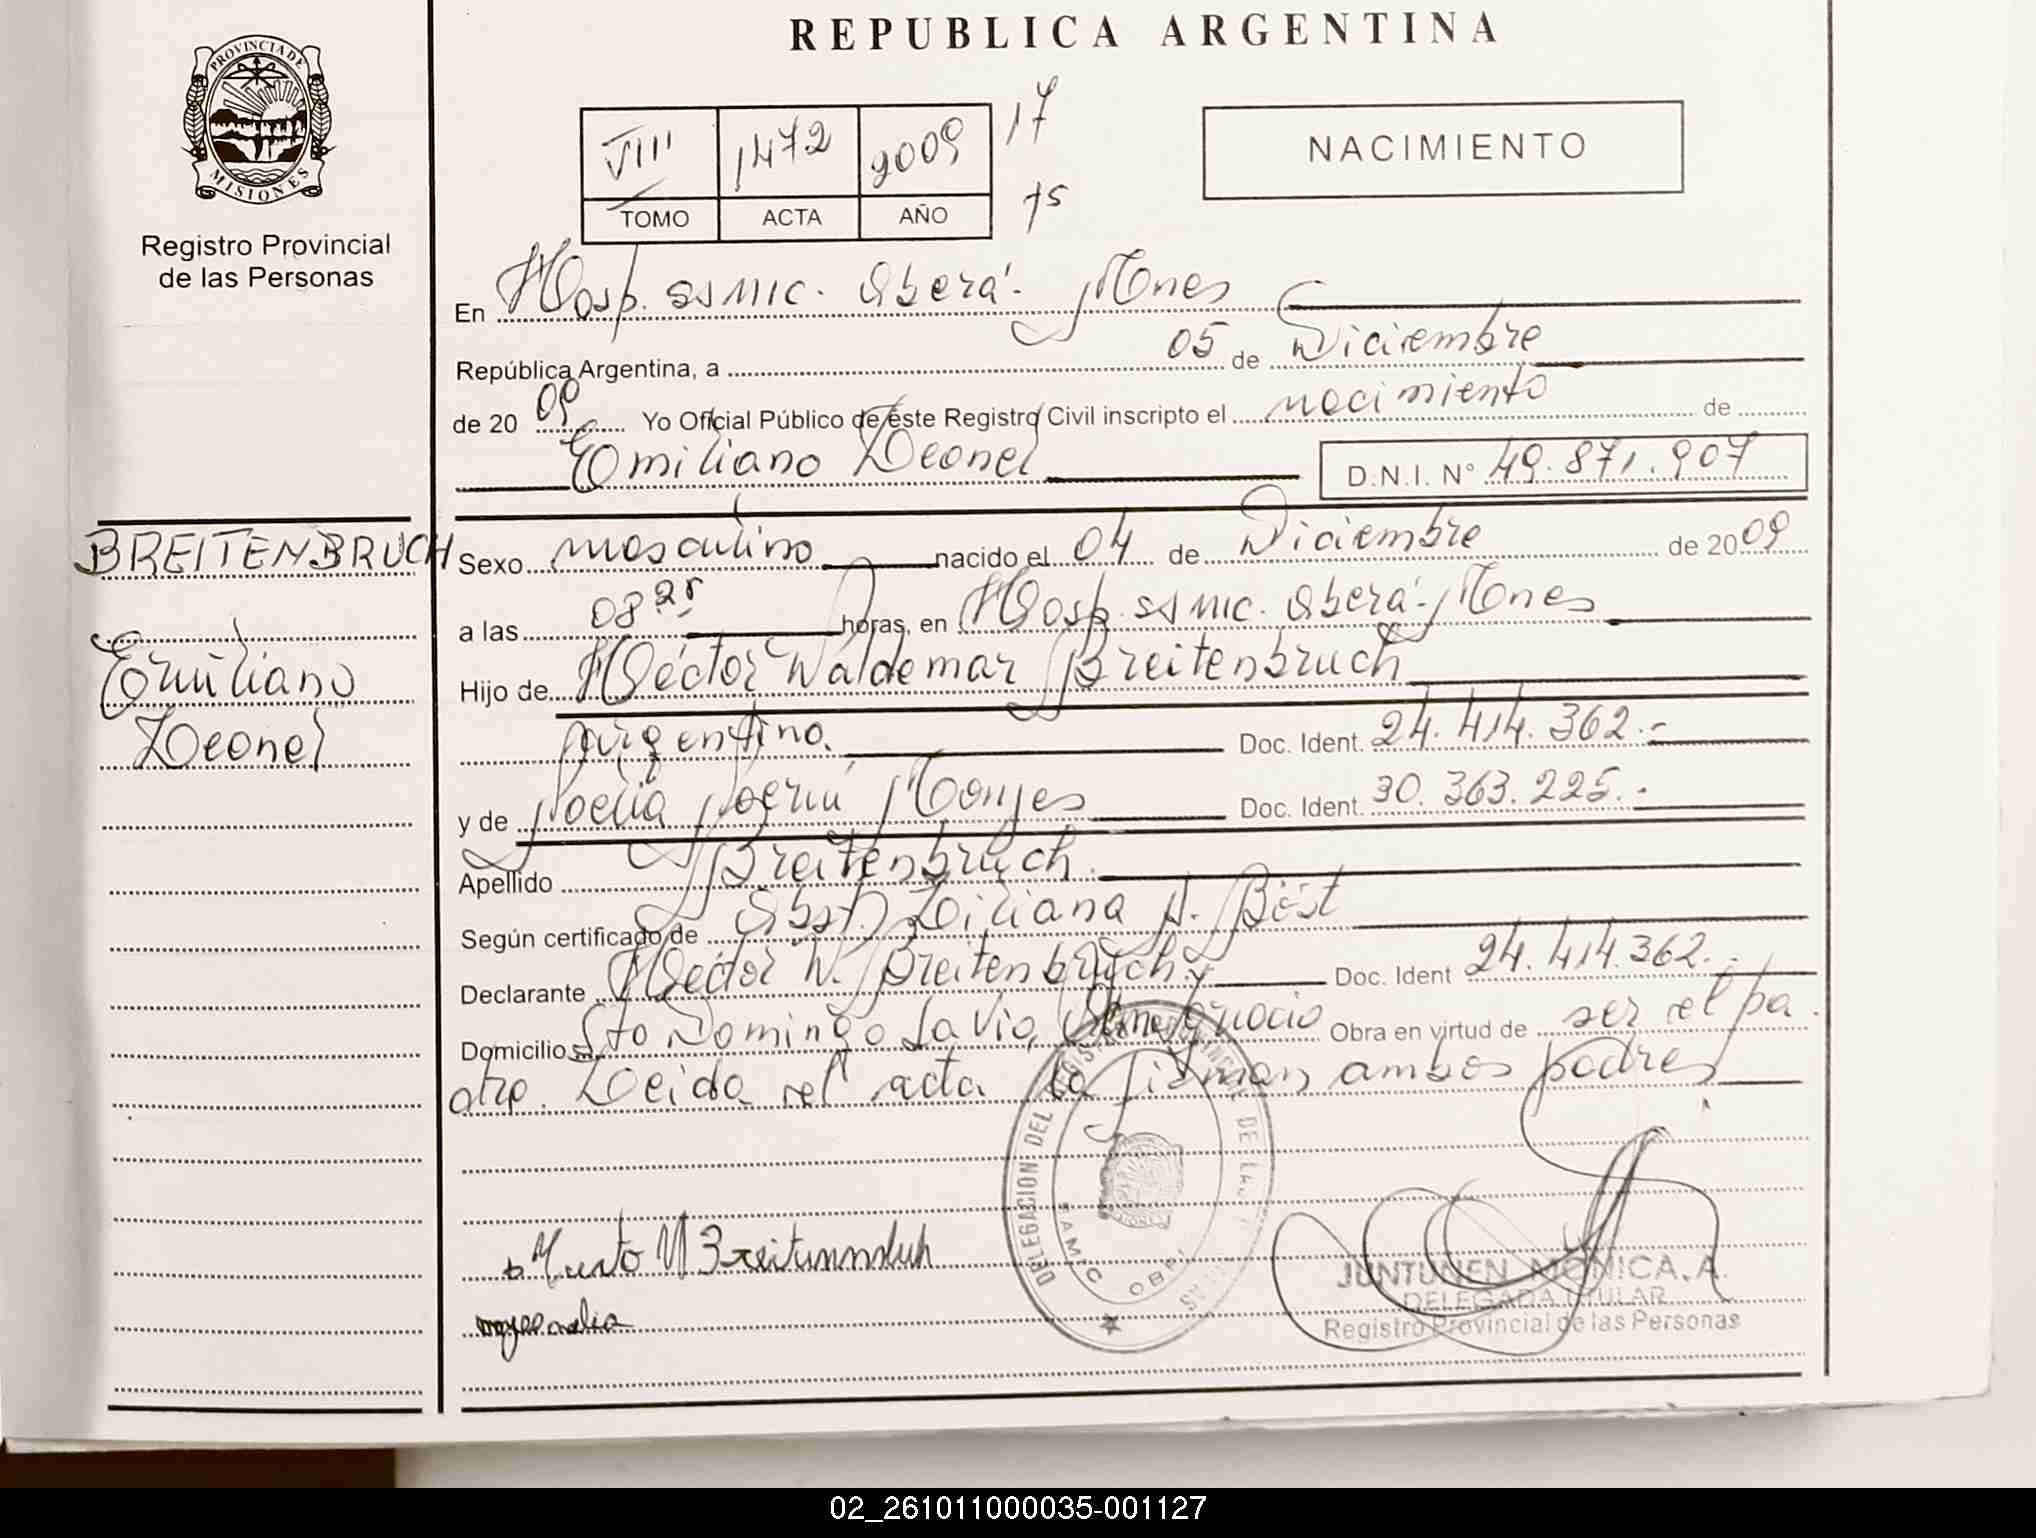 REPUBLICA ARGENTINA
PROVINCIA DE
MISIONES
Registro Provincial
de las Personas
VIII 1472 2009 17
75
TOMO ACTA AÑO
NACIMIENTO
En Hosp. SAMIC. Oberá. Mnes
República Argentina, a 05 de Diciembre
de 2009 Yo Oficial Público de este Registro Civil inscripto el nacimiento de
Emiliano Leonel D.N.I. N° 49.871.907
BREITENBRUCH
Emiliano
Leonel
Sexo masculino nacido el 04 de Diciembre de 2009
a las 08 25 horas, en Hosp. SAMIC. Oberá. Mnes
Hijo de Héctor Waldemar Breitenbruch
Argentino. Doc. Ident. 24.414.362.-
y de Noelia Noemí Monjes Doc. Ident. 30.363.225.-
Apellido Breitenbruch.
Según certificado de Obst. Liliana A. Böst
Declarante Héctor W. Breitenbruch y Doc. Ident 24.414.362.-
Domicilio Sto Domingo Savio, Ignacio Obra en virtud de ser el pa
dre. Leida el acta la firman ambos padres
DELEGACION DEL REGISTRO PROVINCIAL DE LAS
SAMIC
JUNTUNEN MONICA. A.
DELEGADA TITULAR
Registro Provincial de las Personas
02_261011000035-001127